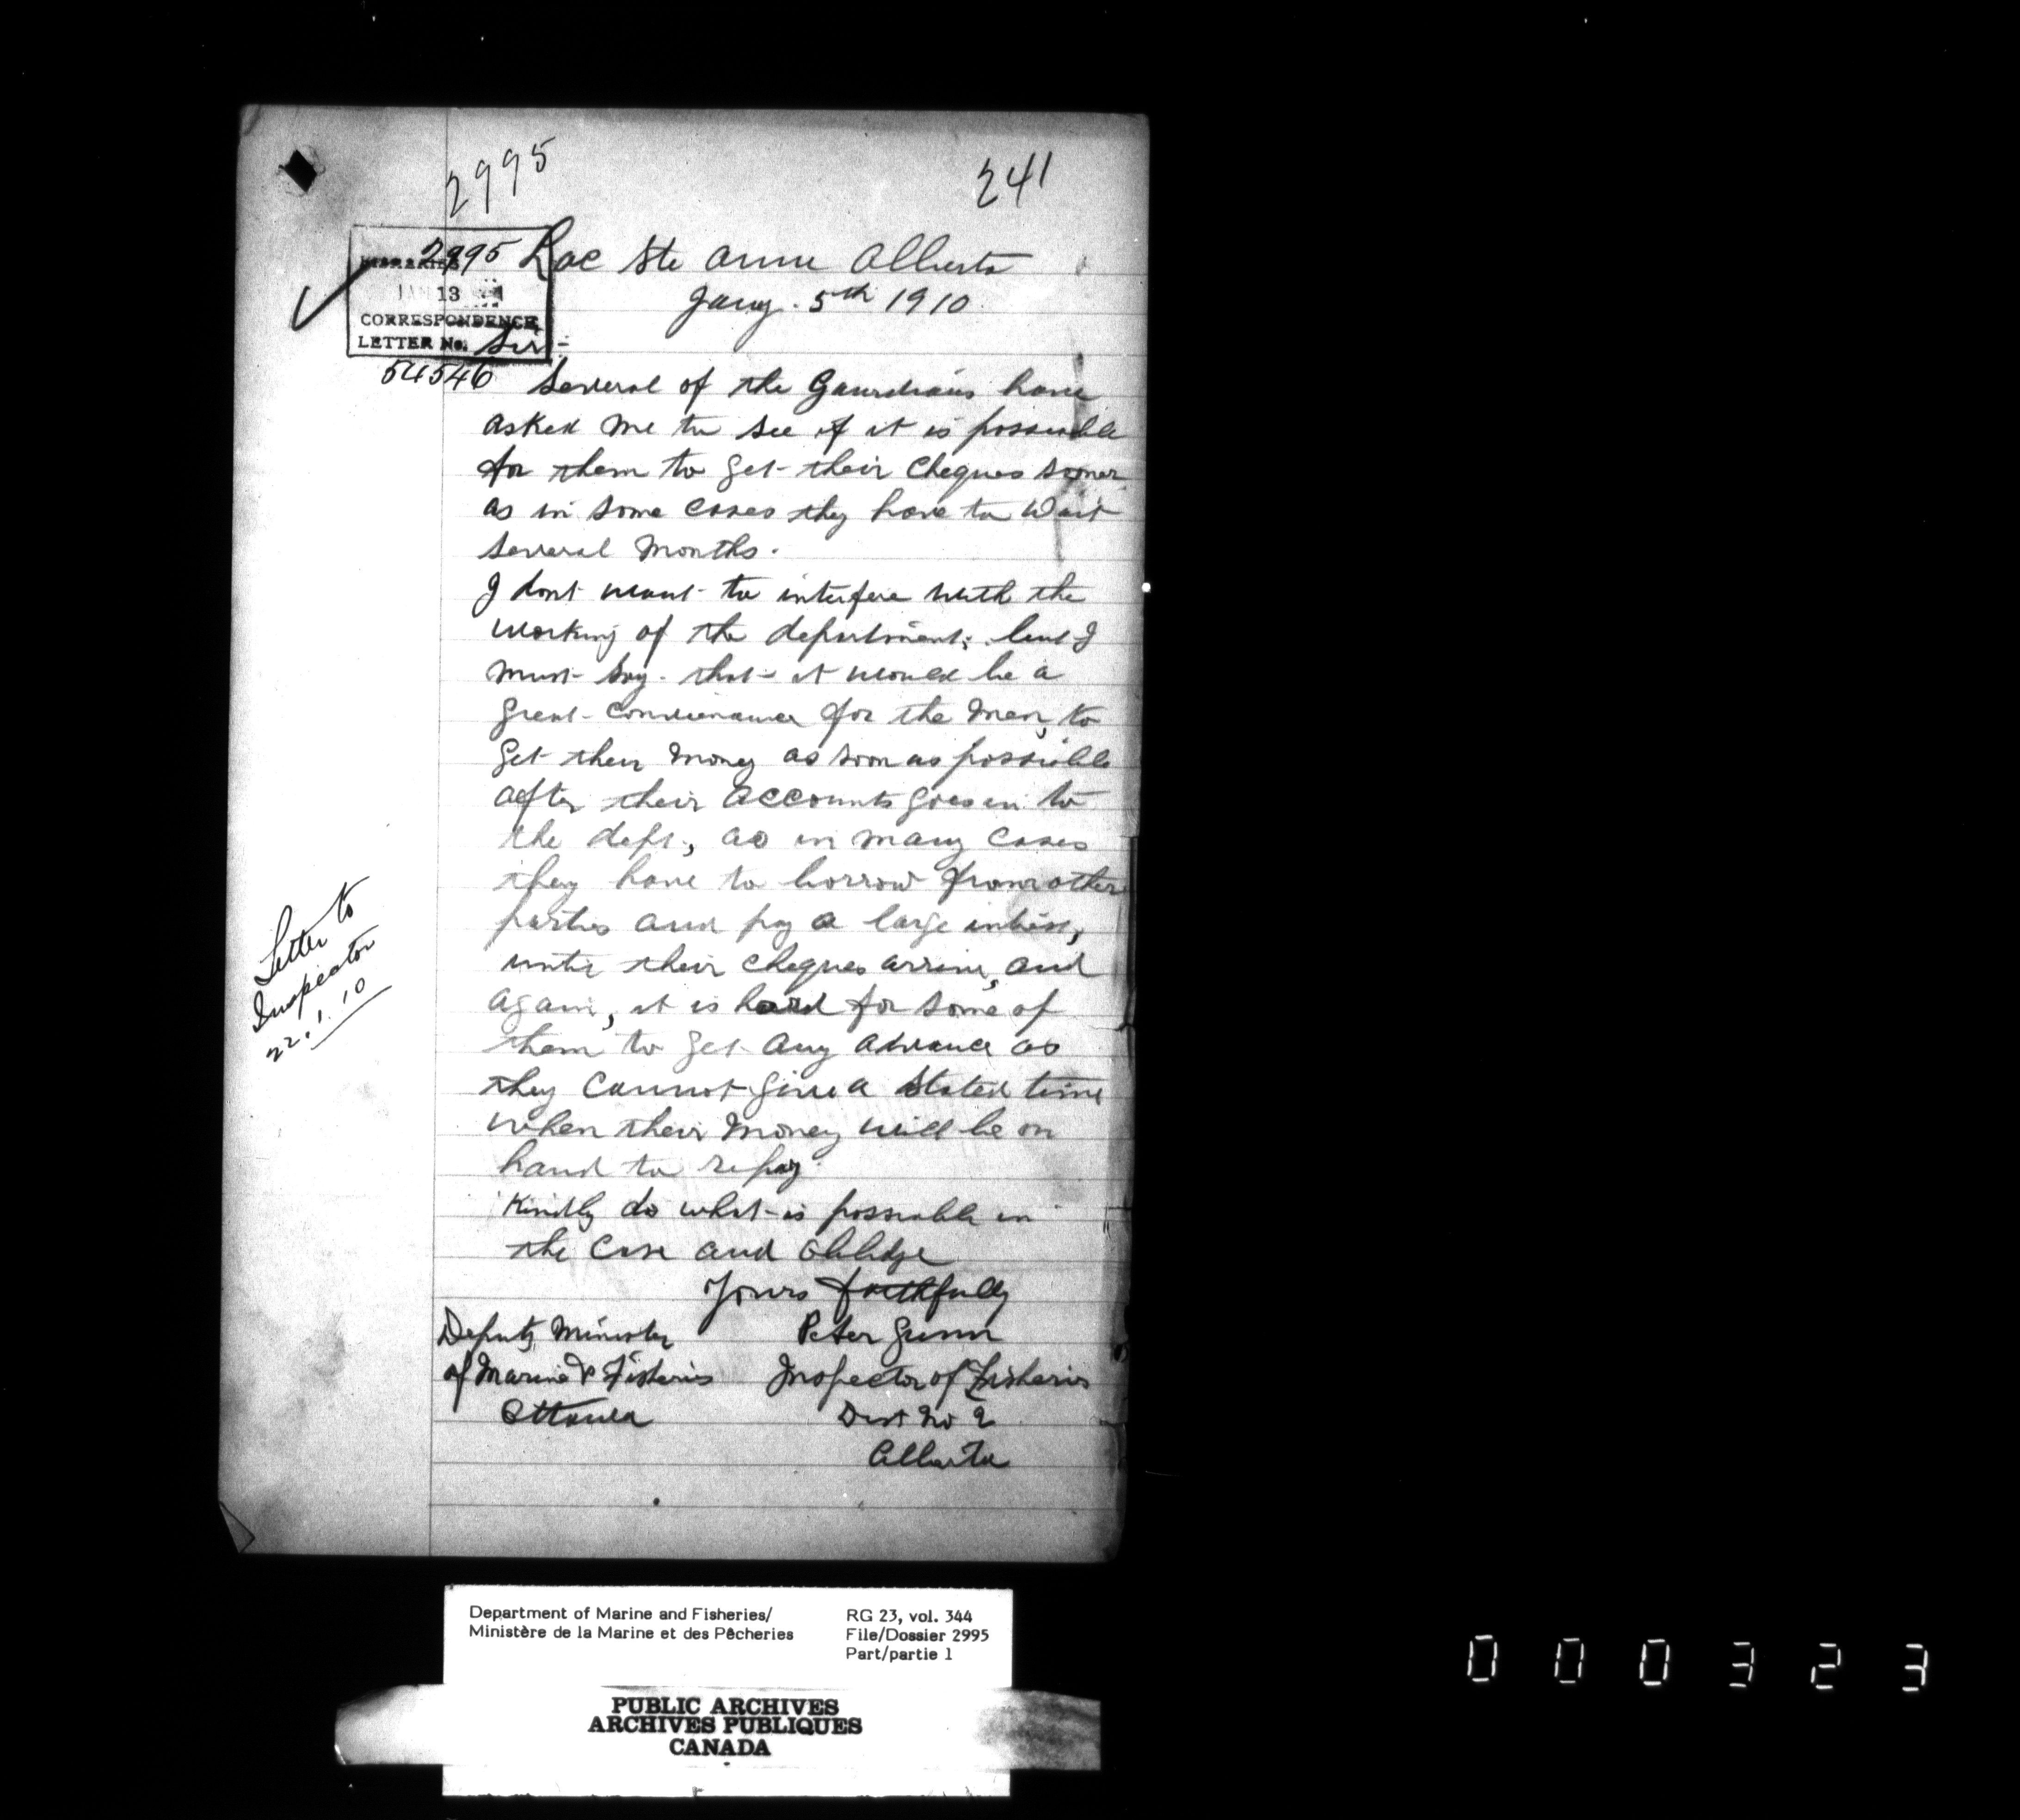 2995
241
2995
FISHERIES
JAN 13
CORRESPONDENCE
LETTER No.
54546
Lac Ste Anne Alberta
Jany. 5th 1910
Sir:-
Several of the Gaurdians have
asked me to see if it is possiable
for them to get their Cheques sooner
as in some cases they have to Wait
several months.
I dont want to interfere with the
working of the department; but I
must say that it would be a
great convienance for the men, to
get their money as soon as possiable
after their accounts goes in to
the dept, as in many cases
they have to borrow from other
parties and pay a large intrest,
until their cheques arrive, and
again, it is hard for some of
them to get any advance as
they cannot give a stated time
when their money will be on
hand to repay.
Kindly do what is possiable in
the case and oblidge
Yours faithfully
Peter Gunn
Inspector of Fisheries
Dist No 2
Alberta
Deputy Minister
of Marine & Fisheries
Ottawa
Letter to
Inspector
22.1.10
Department of Marine and Fisheries/
Ministère de la Marine et des Pêcheries
RG 23, vol. 344
File/Dossier 2995
Part/partie 1
PUBLIC ARCHIVES
ARCHIVES PUBLIQUES
CANADA
000323